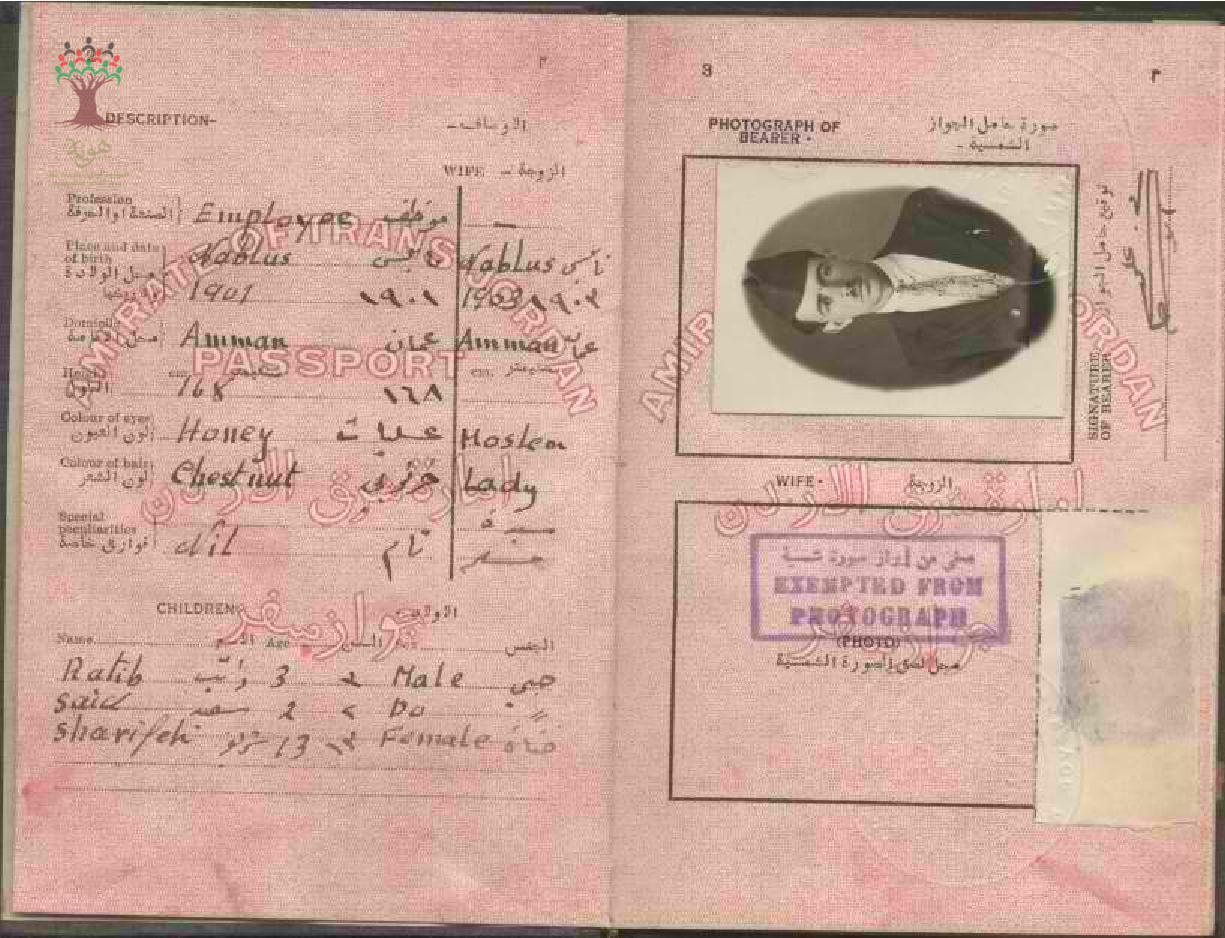 ٢
DESCRIPTION-
الاوصاف-
هوية
WIFE - الزوجة
Profession الصنعة او الحرفة Employee موظف —
Place and date of birth محل الولادة Nablus نابلس Nablus نابلس
1901 ١٩٠١ 1903 ١٩٠٣
Domicile محل الاقامة Amman عمان Amman عمان
Height الطول cm. سنتيمتر cm. سنتيمتر
168 ١٦٨
Colour of eyes لون العيون Honey Moslem
Colour of hair لون الشعر Chestnut Lady
Special peculiarities فوارق خاصة Nil سيدة
CHILDREN- الاولاد-
Name الاسم Age السن Sex الجنس
Ratib راتب 3 ٣ Male صبي
Said سعيد 2 ٢ Do
Sharifeh 13 ١٣ Female فتاة
AMIRATE OF TRANS-JORDAN
PASSPORT
امارة شرق الاردن
جواز سفر
3
٣
PHOTOGRAPH OF BEARER-
صورة حامل الجواز الشمسية -
توقيع حامل الجواز
SIGNATURE OF BEARER
WIFE- الزوجة
EXEMPTED FROM
PHOTOGRAPH
(PHOTO)
محل لصق الصورة الشمسية